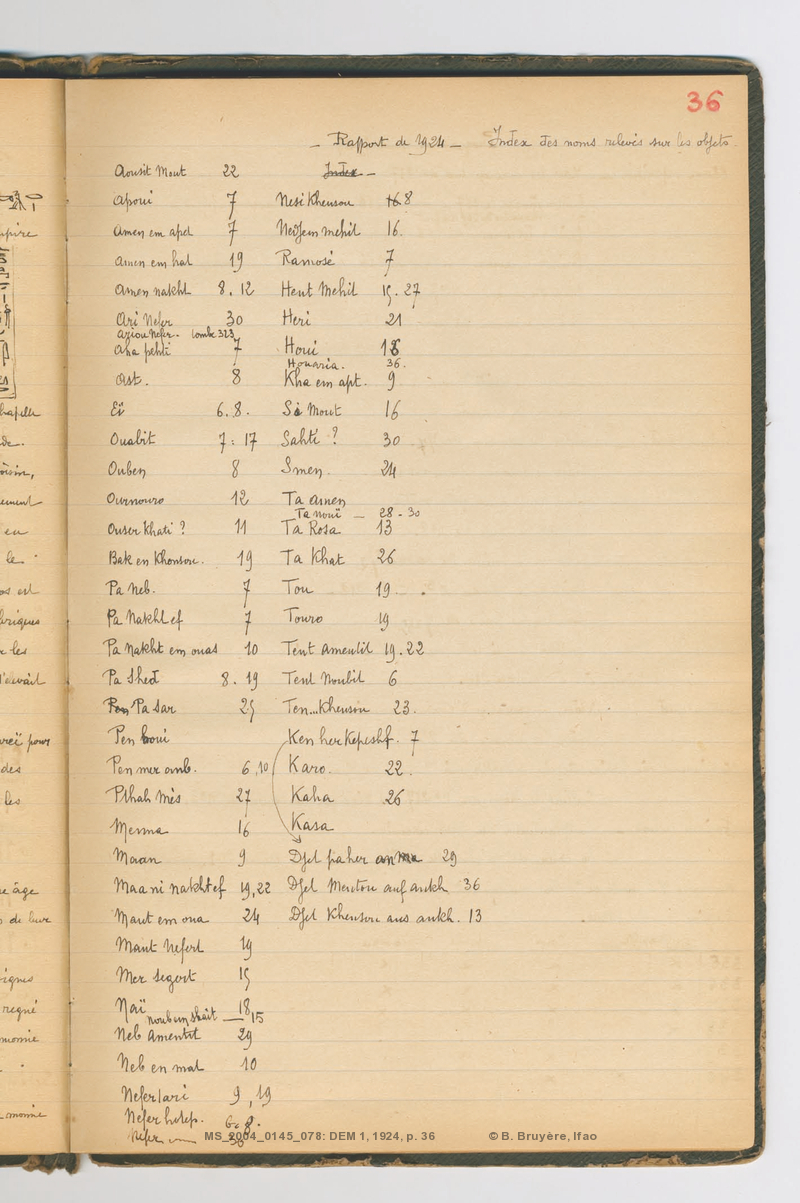 36
— Rapport de 1924 — Index des noms relevés sur les objets.
Index —
Aousit Mout 22
Apoui 7
Amen em apet 7
Amen em hat 19
Amen nakht 8. 12
Ari Nefer 30
Ariou Nefer. tombe 323
Aha pehti 7
Ast. 8
Eï 6. 8.
Ouabit 7. 17
Ouben 8
Ournouro 12
Ouser Khati ? 11
Bak en Khonsou. 19
Pa Neb. 7
Pa Nakht ef 7
Pa Nakht em ouas 10
Pa Shed 8. 19
Pen Pa Sar 25
Pen boui
Pen mer anb. 6,10
Pthah Mès 27
Merma 16
Maan 9
Maa ni nakhtef 19,22
Maut em oua 24
Maut Nefert 19
Mer Segert 15
Naï 18
Noub em shait — 15
Neb Amentit 29
Neb en mat 10
Nefertari 9, 19
Nefer hotep. 6. 8.
Nefer
Nesi Khensou 16 8
Nedjem mehit 16.
Ramosé 7
Hent Mehit 15. 27
Heri 21
Houi 18
Houaria. 36.
Kha em apt. 9
Si Mout 16
Sahti ? 30
Smen. 24
Ta Amen
Ta Nouï — 28 - 30
Ta Rosa 13
Ta Khat 26
Tou 19.
Touro 19
Tent Amentit 19. 22
Tent Noubit 6
Ten...Khensou 23.
Ken her Kepeshf. 7
Karo. 22.
Kaha 26
Kasa
Djet pa her an ma 29
Djet Mentou auf ankh 36
Djet Khensou aus ankh. 13
MS_2004_0145_078: DEM 1, 1924, p. 36 © B. Bruyère, Ifao